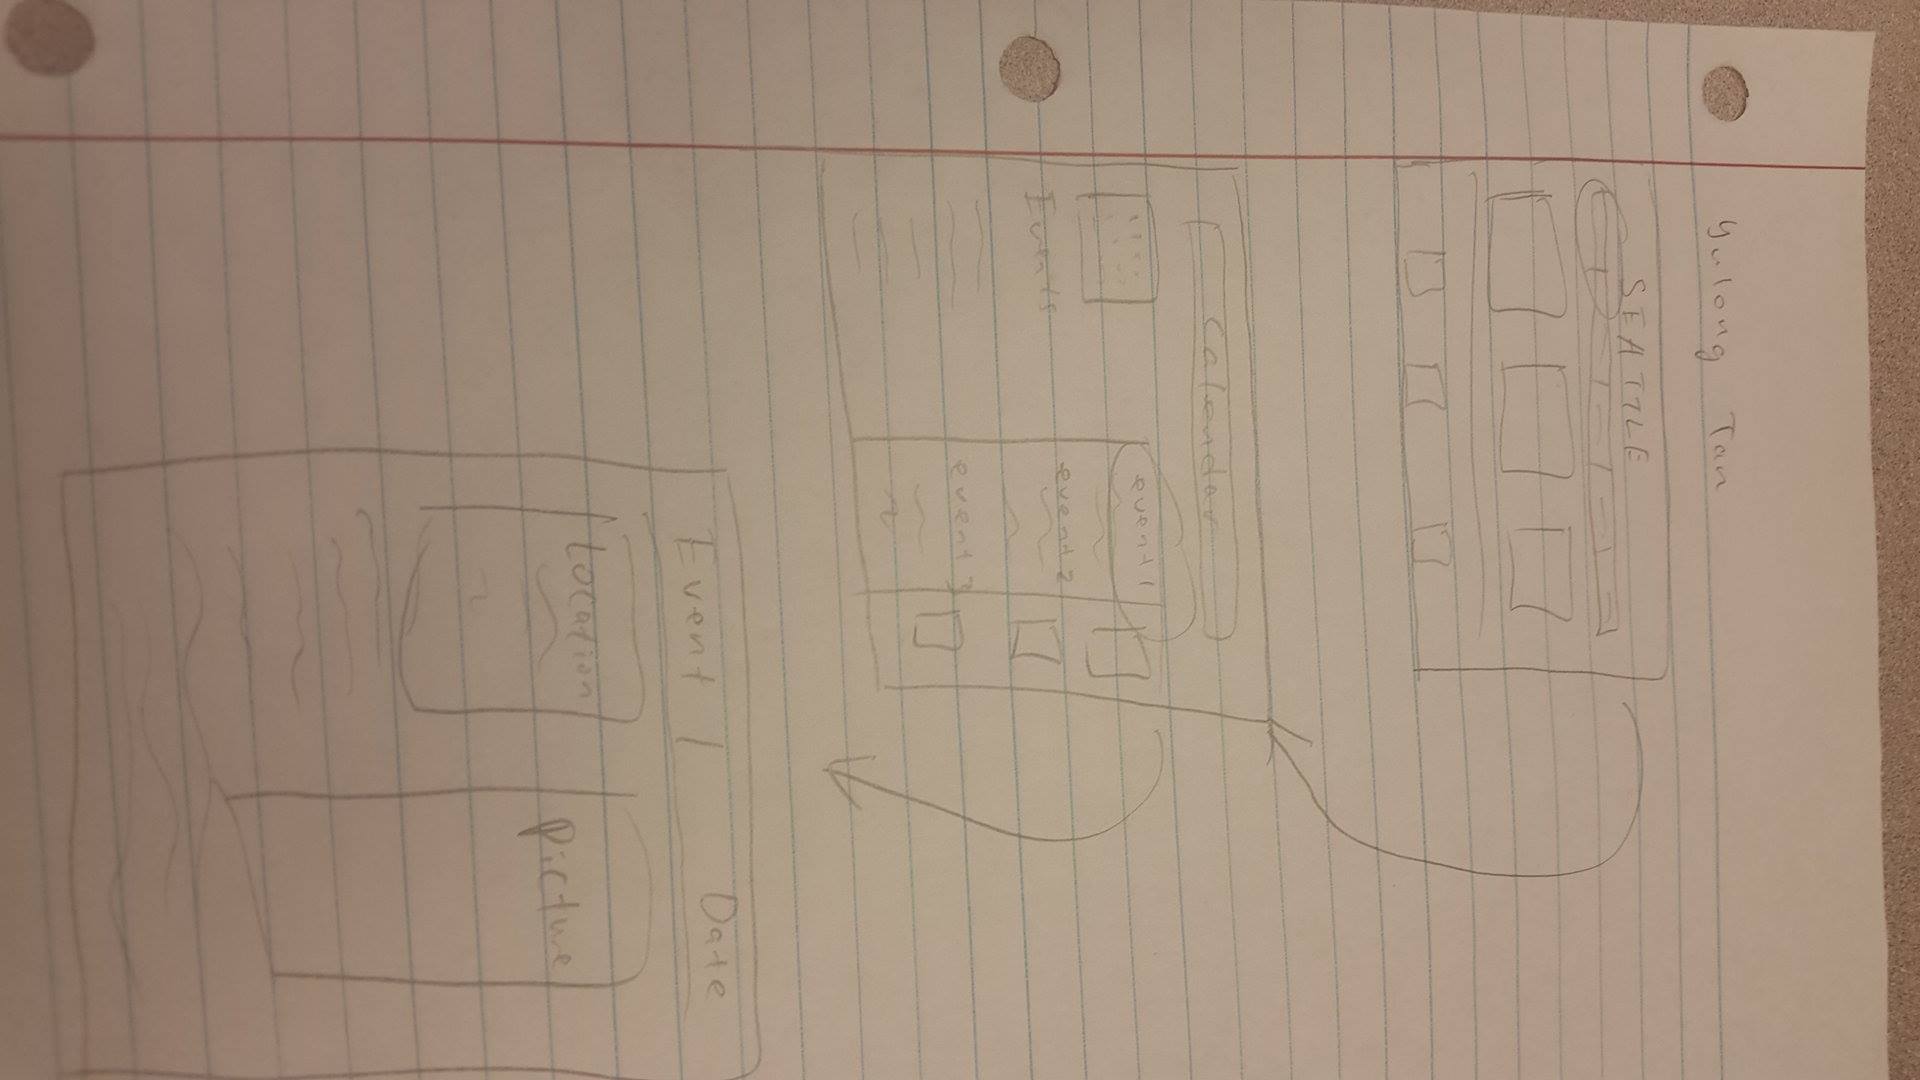 Yulong Tan
SEATTLE
Calendar
Events
event 1
event 2
event 3
Event 1 Date
Location
Picture